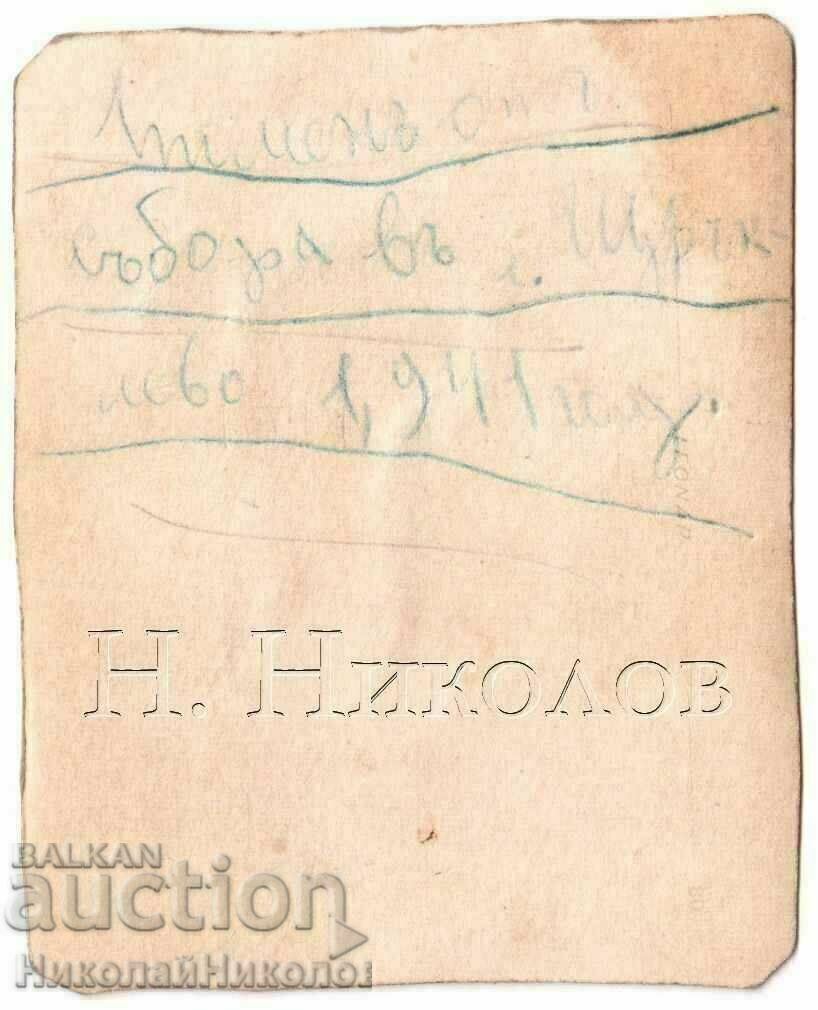 Спомень от
събора въ с. Щрък-
лево 1,941 год.
LEONAR
Н. Николов
BALKAN
auction
НиколайНиколов